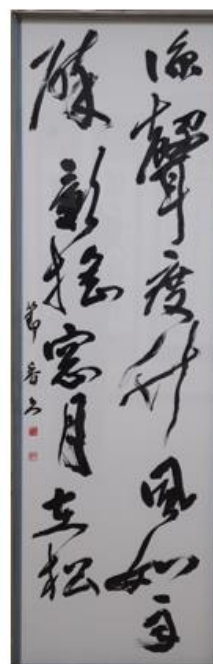 涼聲度竹風如雨
碎影搖窓月在松